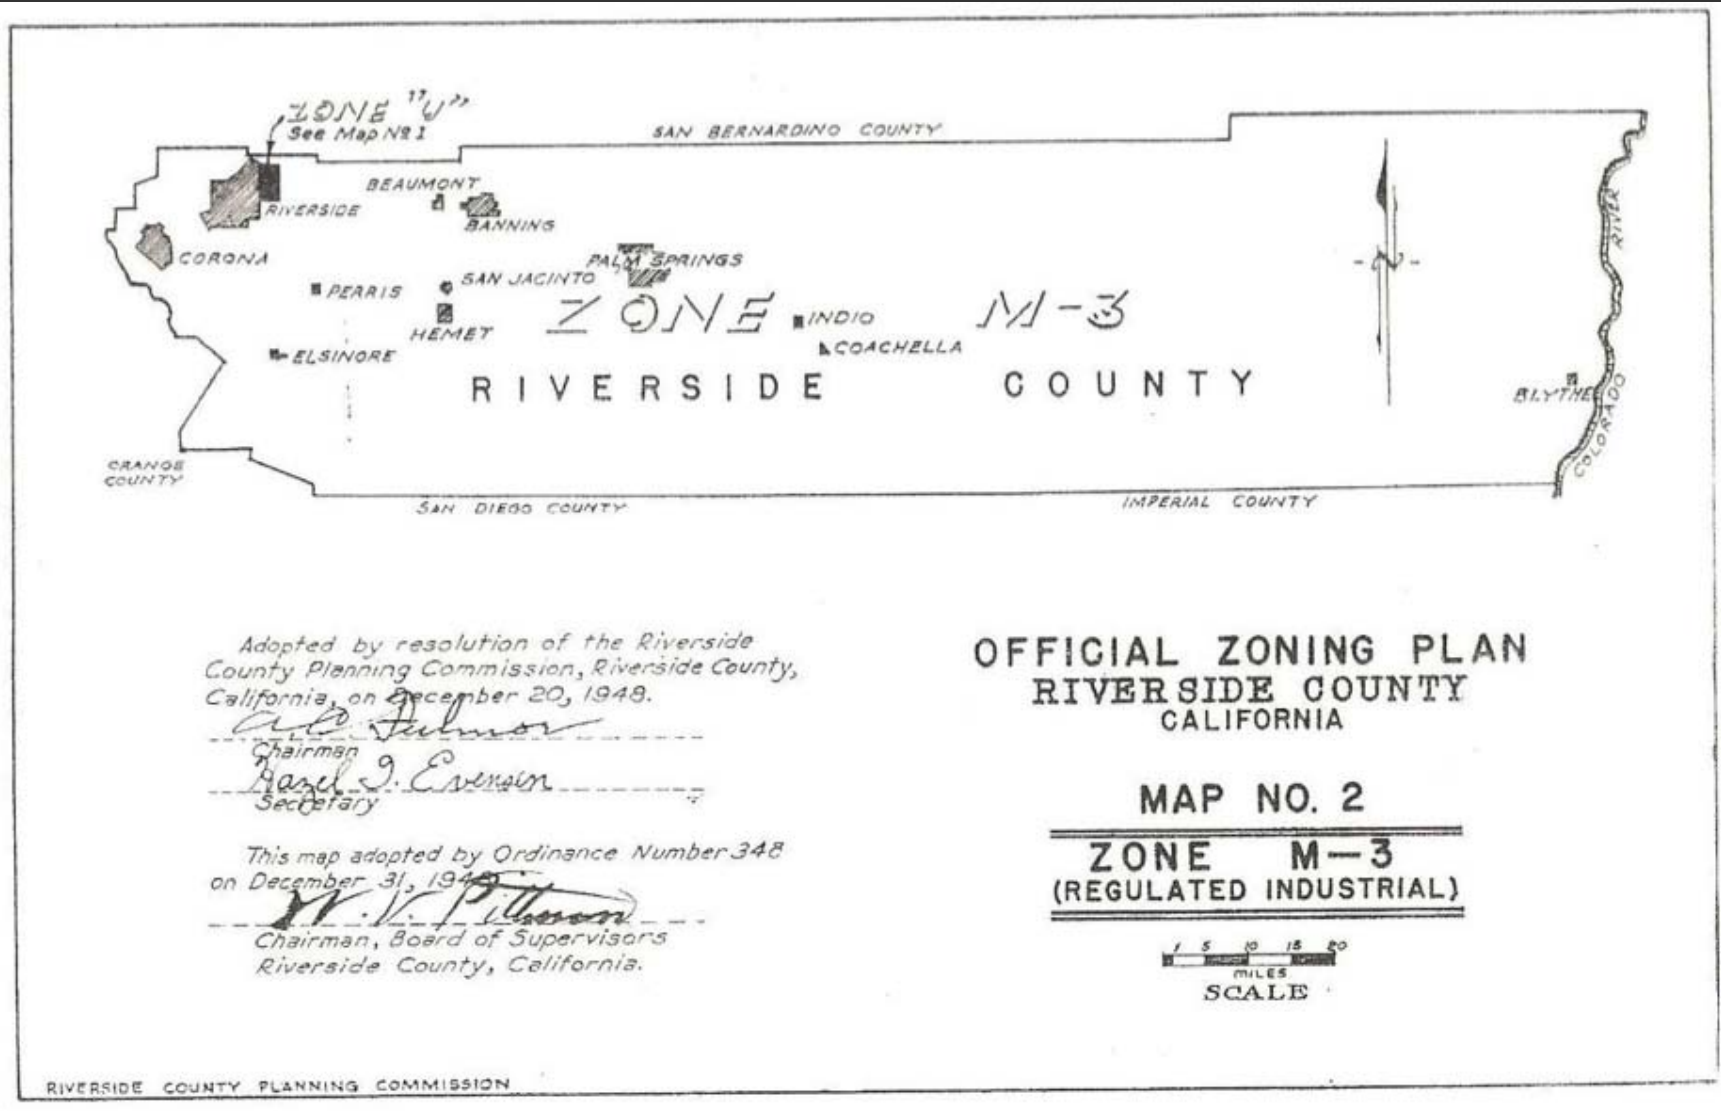 ZONE "U"
See Map No 1
SAN BERNARDINO COUNTY
BEAUMONT
RIVERSIDE
BANNING
CORONA
PALM SPRINGS
PERRIS
SAN JACINTO
ZONE M-3
INDIO
HEMET
ELSINORE
COACHELLA
RIVERSIDE COUNTY
BLYTHE
COLORADO RIVER
N
ORANGE
COUNTY
SAN DIEGO COUNTY
IMPERIAL COUNTY
Adopted by resolution of the Riverside
County Planning Commission, Riverside County,
California, on December 20, 1948.
A.C. Fulmor
Chairman
Hazel I. Evensen
Secretary
This map adopted by Ordinance Number 348
on December 31, 1948
W.V. Pittman
Chairman, Board of Supervisors
Riverside County, California.
OFFICIAL ZONING PLAN
RIVERSIDE COUNTY
CALIFORNIA
MAP NO. 2
ZONE M-3
(REGULATED INDUSTRIAL)
1 5 10 15 20
MILES
SCALE
RIVERSIDE COUNTY PLANNING COMMISSION